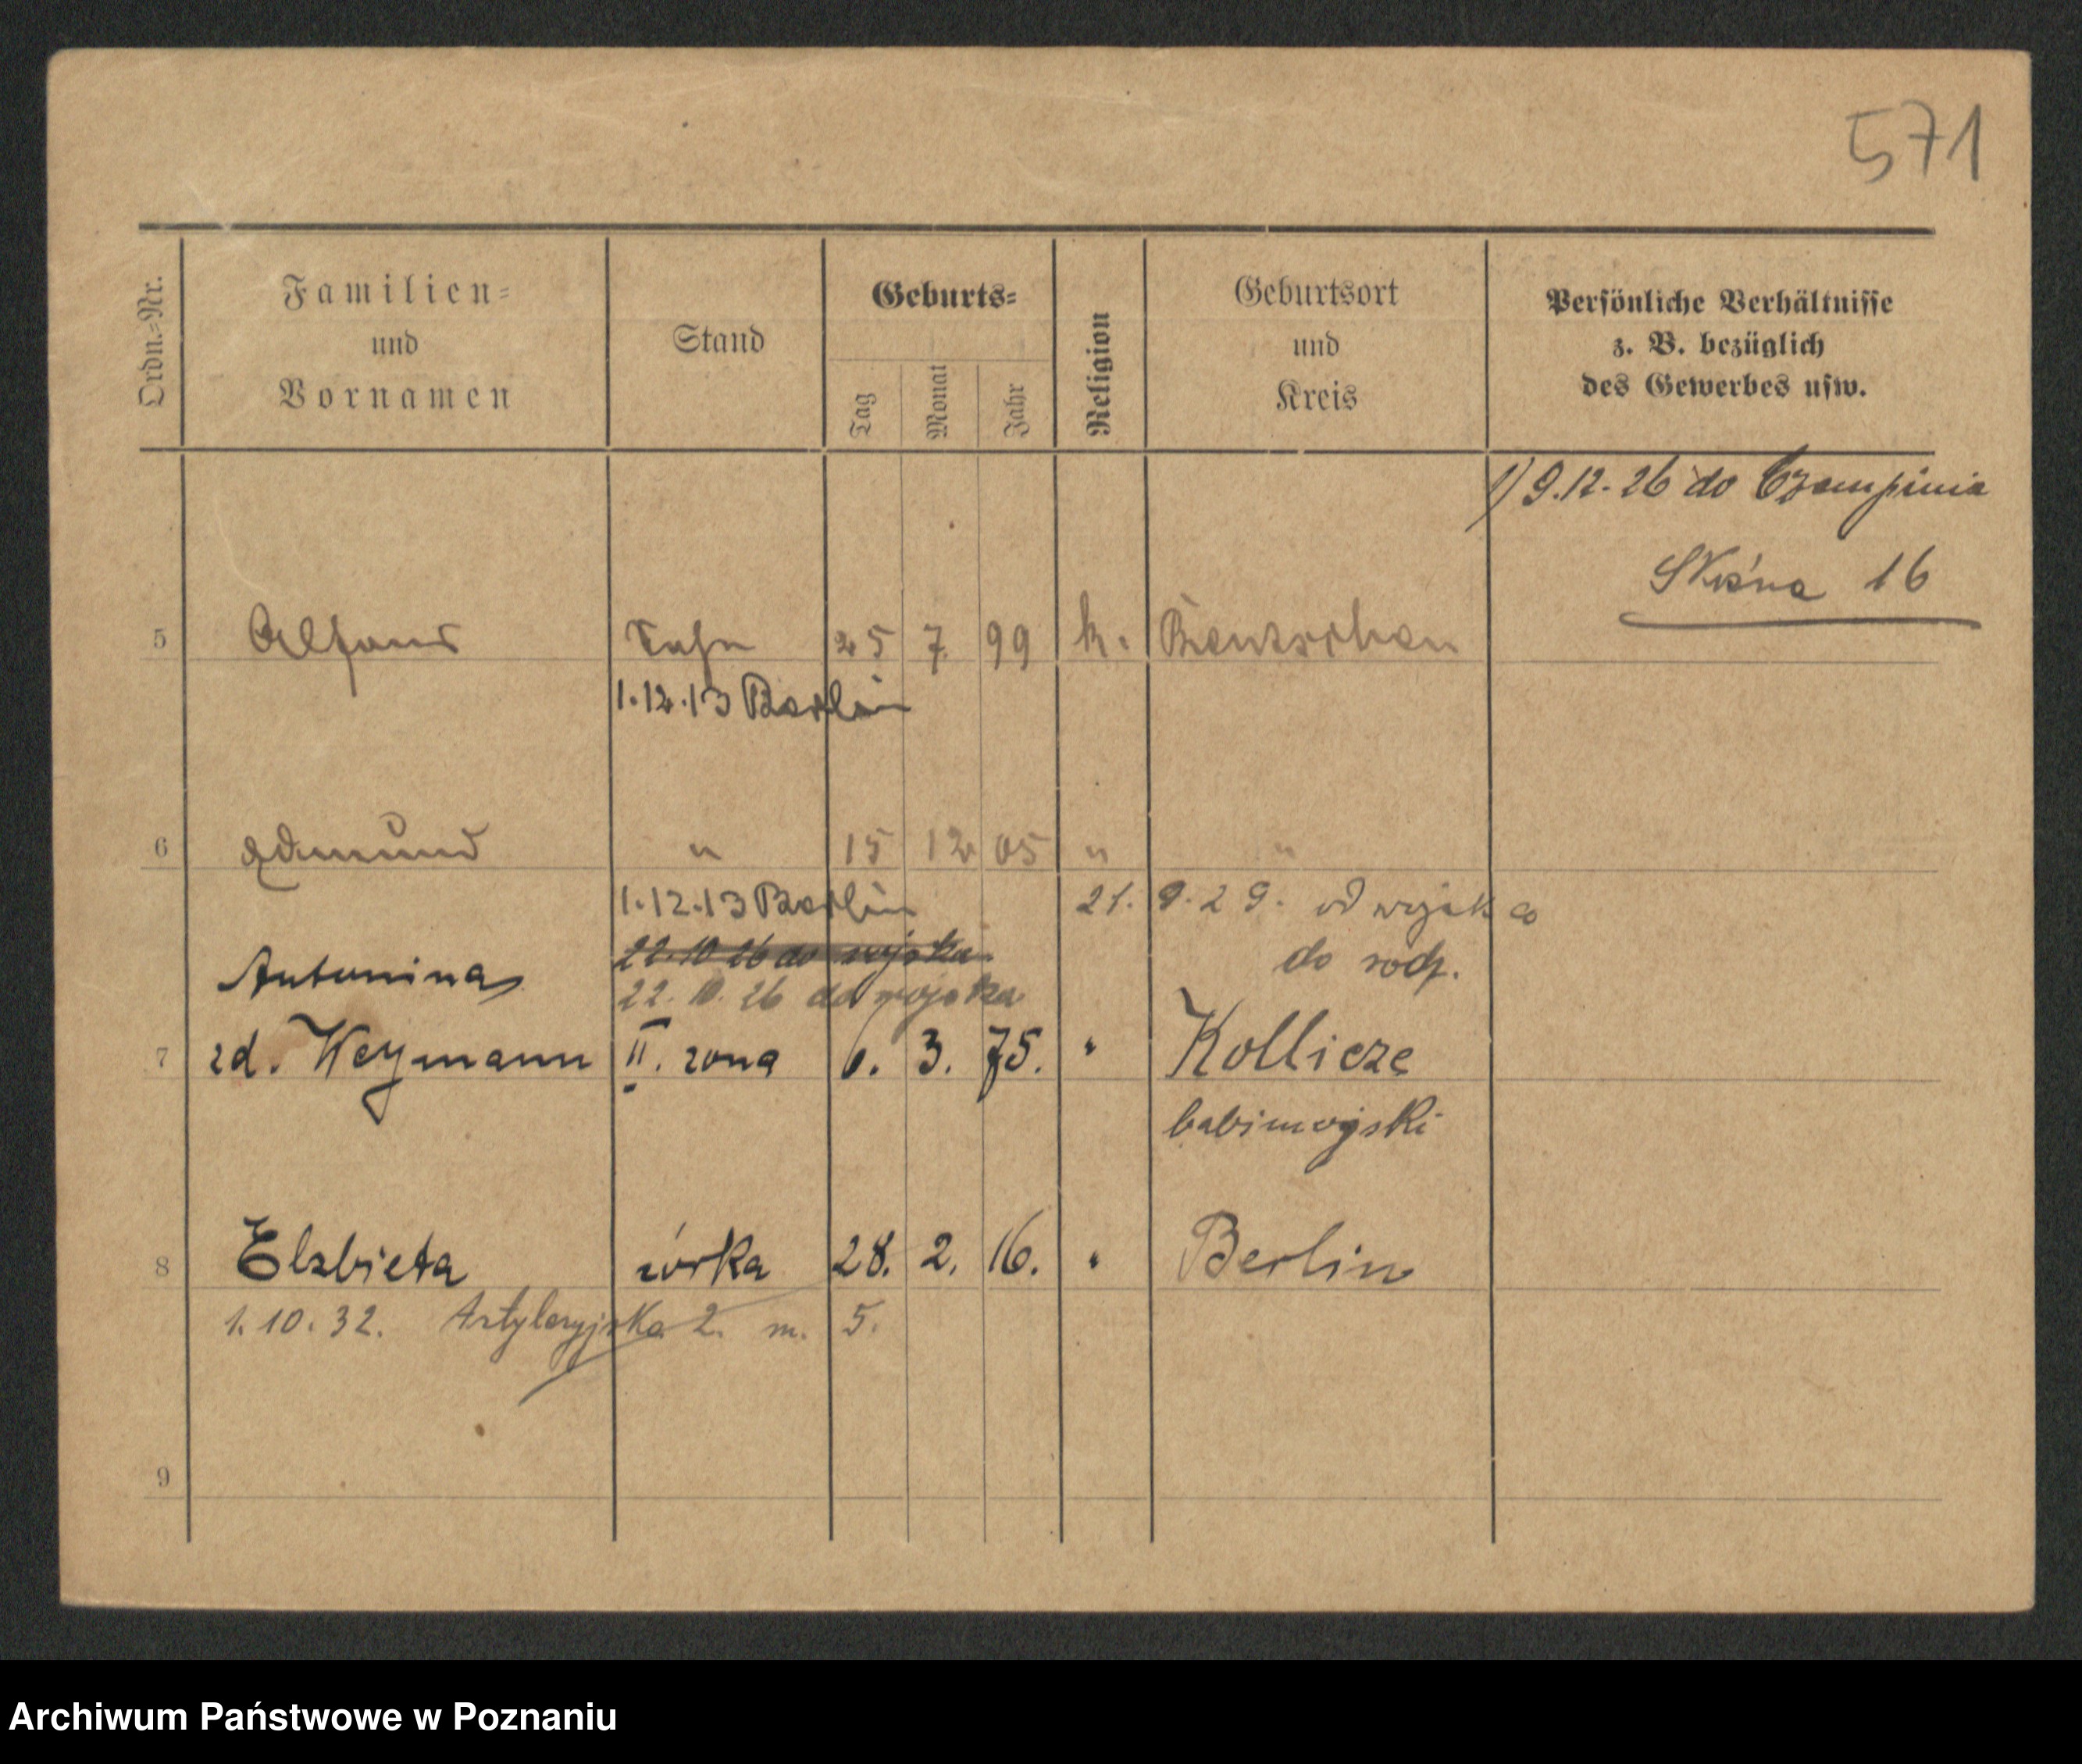 571
Ordn.=Nr.
Familien=
und
Vornamen
Stand
Geburts=
Tag
Monat
Jahr
Religion
Geburtsort
und
Kreis
Persönliche Verhältnisse
z. B. bezüglich
des Gewerbes usw.
1) 9.12.26 do Czempinia
16
5 Alfons Sohn 25 7. 99 k. Bentschen
1.12.13 Berlin
6 Edmund " 15 12 05 " "
1.12.13 Berlin 21. 9. 29. od wojska
22.10 26 do wojska do rodz.
Antonina 22. 10. 26 do wojska
7 zd. Weymann II. zona 6. 3. 75. " Kollicze
babimojski
8 Elzbieta córka 28. 2. 16. " Berlin
1.10.32. Artyleryjska 2. m. 5.
9
Archiwum Państwowe w Poznaniu